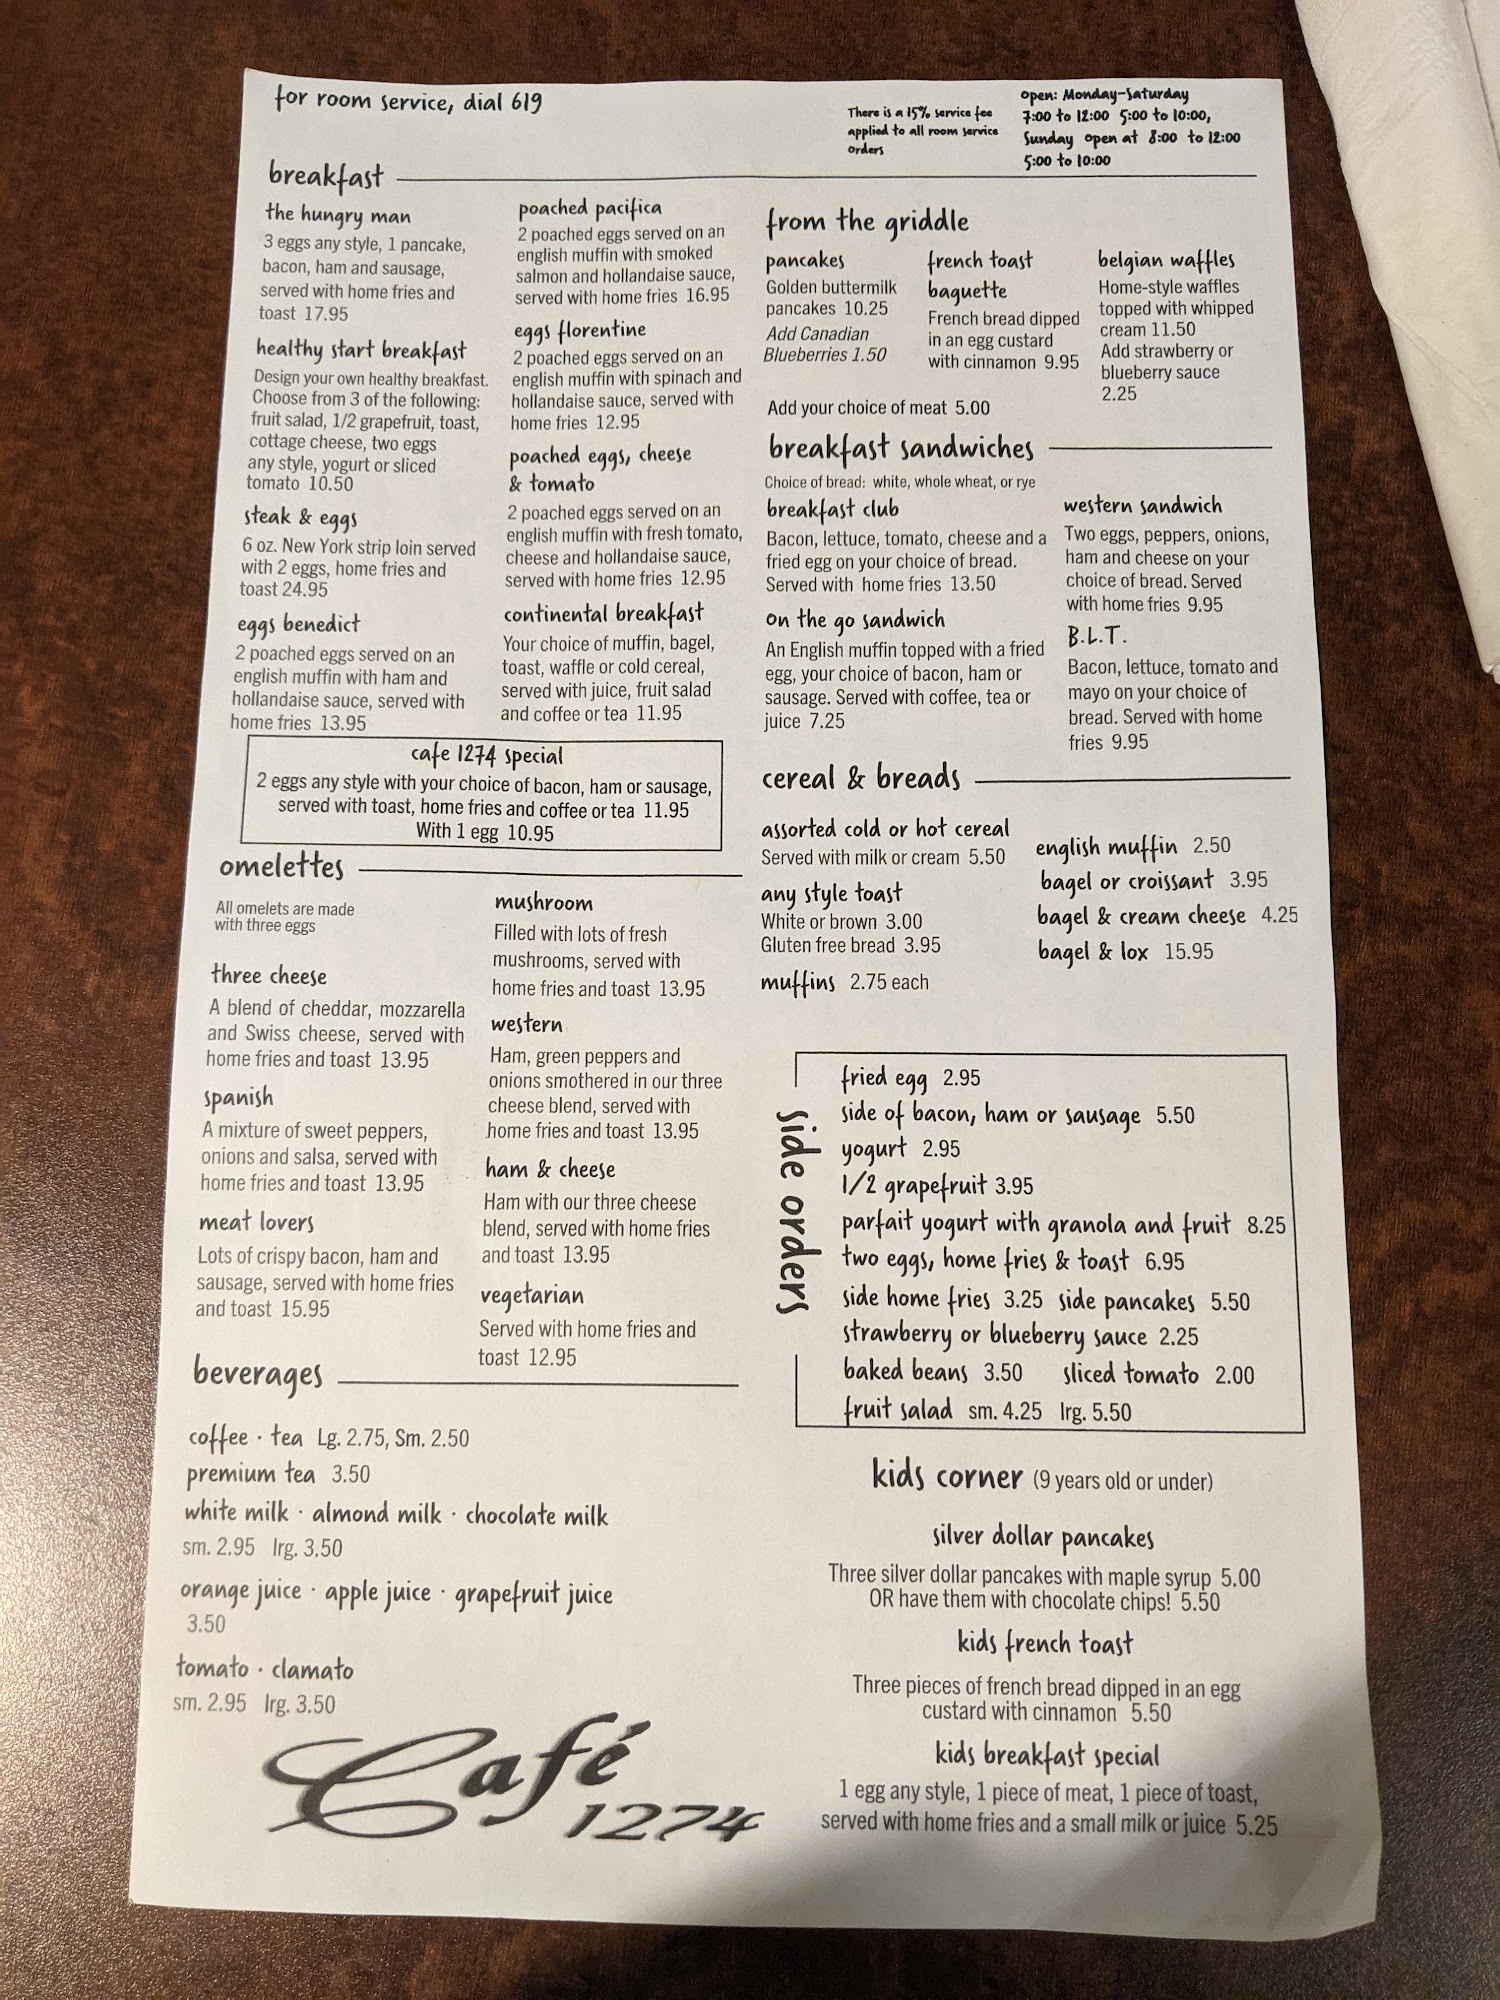 for room service, dial 619
There is a 15% service fee
applied to all room service
orders
open: Monday-Saturday
7:00 to 12:00 5:00 to 10:00,
Sunday open at 8:00 to 12:00
5:00 to 10:00
breakfast
the hungry man
3 eggs any style, 1 pancake,
bacon, ham and sausage,
served with home fries and
toast 17.95
healthy start breakfast
Design your own healthy breakfast.
Choose from 3 of the following:
fruit salad, 1/2 grapefruit, toast,
cottage cheese, two eggs
any style, yogurt or sliced
tomato 10.50
steak & eggs
6 oz. New York strip loin served
with 2 eggs, home fries and
toast 24.95
eggs benedict
2 poached eggs served on an
english muffin with ham and
hollandaise sauce, served with
home fries 13.95
poached pacifica
2 poached eggs served on an
english muffin with smoked
salmon and hollandaise sauce,
served with home fries 16.95
eggs florentine
2 poached eggs served on an
english muffin with spinach and
hollandaise sauce, served with
home fries 12.95
poached eggs, cheese
& tomato
2 poached eggs served on an
english muffin with fresh tomato,
cheese and hollandaise sauce,
served with home fries 12.95
continental breakfast
Your choice of muffin, bagel,
toast, waffle or cold cereal,
served with juice, fruit salad
and coffee or tea 11.95
cafe 1274 special
2 eggs any style with your choice of bacon, ham or sausage,
served with toast, home fries and coffee or tea 11.95
With 1 egg 10.95
omelettes
All omelets are made
with three eggs
three cheese
A blend of cheddar, mozzarella
and Swiss cheese, served with
home fries and toast 13.95
spanish
A mixture of sweet peppers,
onions and salsa, served with
home fries and toast 13.95
meat lovers
Lots of crispy bacon, ham and
sausage, served with home fries
and toast 15.95
mushroom
Filled with lots of fresh
mushrooms, served with
home fries and toast 13.95
western
Ham, green peppers and
onions smothered in our three
cheese blend, served with
home fries and toast 13.95
ham & cheese
Ham with our three cheese
blend, served with home fries
and toast 13.95
vegetarian
Served with home fries and
toast 12.95
beverages
coffee · tea Lg. 2.75, Sm. 2.50
premium tea 3.50
white milk · almond milk · chocolate milk
sm. 2.95 lrg. 3.50
orange juice · apple juice · grapefruit juice
3.50
tomato · clamato
sm. 2.95 lrg. 3.50
Café
1274
from the griddle
pancakes
Golden buttermilk
pancakes 10.25
Add Canadian
Blueberries 1.50
french toast
baguette
French bread dipped
in an egg custard
with cinnamon 9.95
belgian waffles
Home-style waffles
topped with whipped
cream 11.50
Add strawberry or
blueberry sauce
2.25
Add your choice of meat 5.00
breakfast sandwiches
Choice of bread: white, whole wheat, or rye
breakfast club
Bacon, lettuce, tomato, cheese and a
fried egg on your choice of bread.
Served with home fries 13.50
on the go sandwich
An English muffin topped with a fried
egg, your choice of bacon, ham or
sausage. Served with coffee, tea or
juice 7.25
western sandwich
Two eggs, peppers, onions,
ham and cheese on your
choice of bread. Served
with home fries 9.95
B.L.T.
Bacon, lettuce, tomato and
mayo on your choice of
bread. Served with home
fries 9.95
cereal & breads
assorted cold or hot cereal
Served with milk or cream 5.50
any style toast
White or brown 3.00
Gluten free bread 3.95
muffins 2.75 each
english muffin 2.50
bagel or croissant 3.95
bagel & cream cheese 4.25
bagel & lox 15.95
side orders
fried egg 2.95
side of bacon, ham or sausage 5.50
yogurt 2.95
1/2 grapefruit 3.95
parfait yogurt with granola and fruit 8.25
two eggs, home fries & toast 6.95
side home fries 3.25 side pancakes 5.50
strawberry or blueberry sauce 2.25
baked beans 3.50 sliced tomato 2.00
fruit salad sm. 4.25 lrg. 5.50
kids corner (9 years old or under)
silver dollar pancakes
Three silver dollar pancakes with maple syrup 5.00
OR have them with chocolate chips! 5.50
kids french toast
Three pieces of french bread dipped in an egg
custard with cinnamon 5.50
kids breakfast special
1 egg any style, 1 piece of meat, 1 piece of toast,
served with home fries and a small milk or juice 5.25